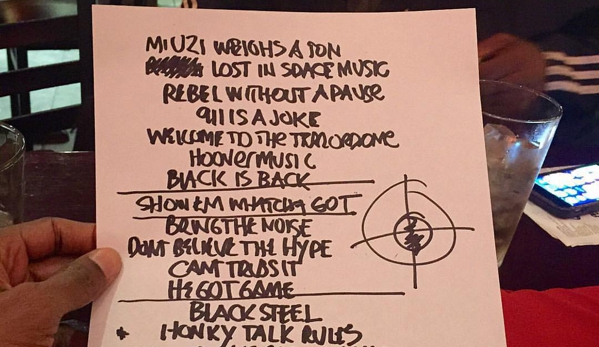 MIUZI WEIGHS A TON
LOST IN SPACE MUSIC
REBEL WITHOUT A PAUSE
911 IS A JOKE
WELCOME TO THE TERRORDOME
HOOVERMUSIC
BLACK IS BACK
SHOW EM WHATCHA GOT
BRING THE NOISE
DONT BELIEVE THE HYPE
CANT TRUSS IT
HE GOT GAME
BLACK STEEL
+ HONKY TALK RULES